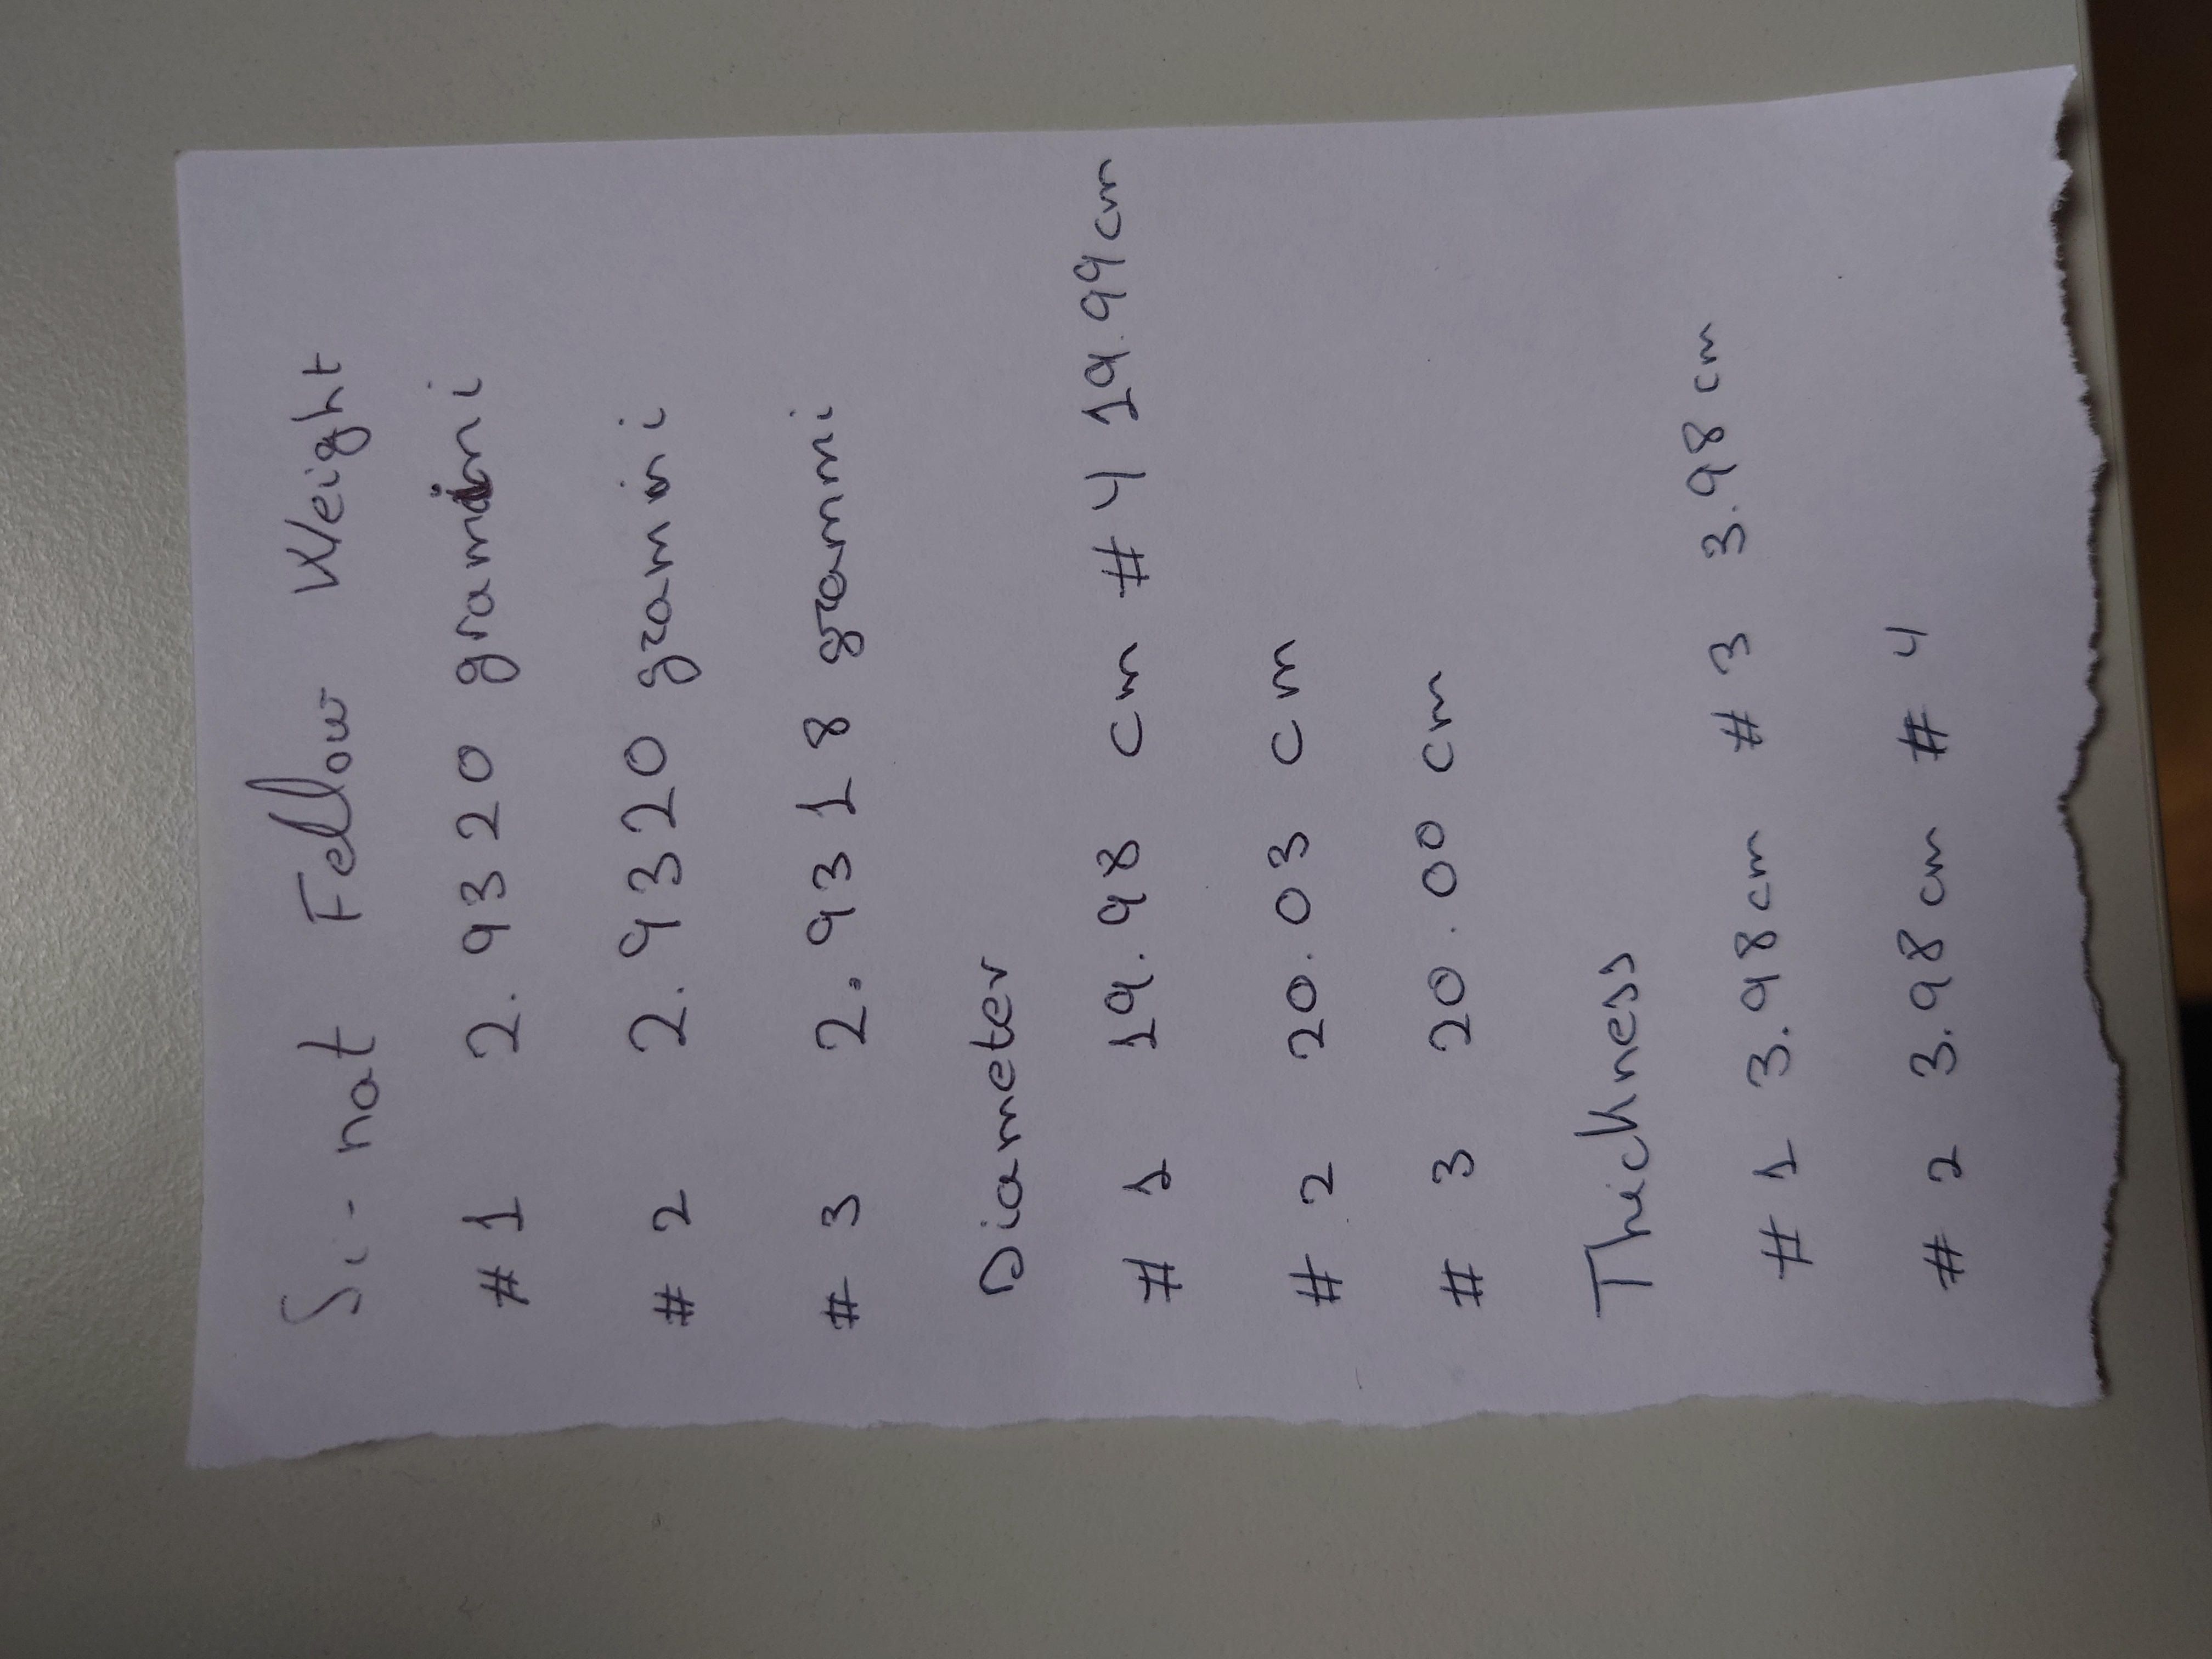 Si-nat Fellow Weight
#1 2.9320 grammi
#2 2.9320 grammi
#3 2.9318 grammi
Diameter
#1 19.98 cm #4 19.99cm
#2 20.03 cm
#3 20.00 cm
Thickness
#1 3.98cm #3 3.98cm
#2 3.98cm #4